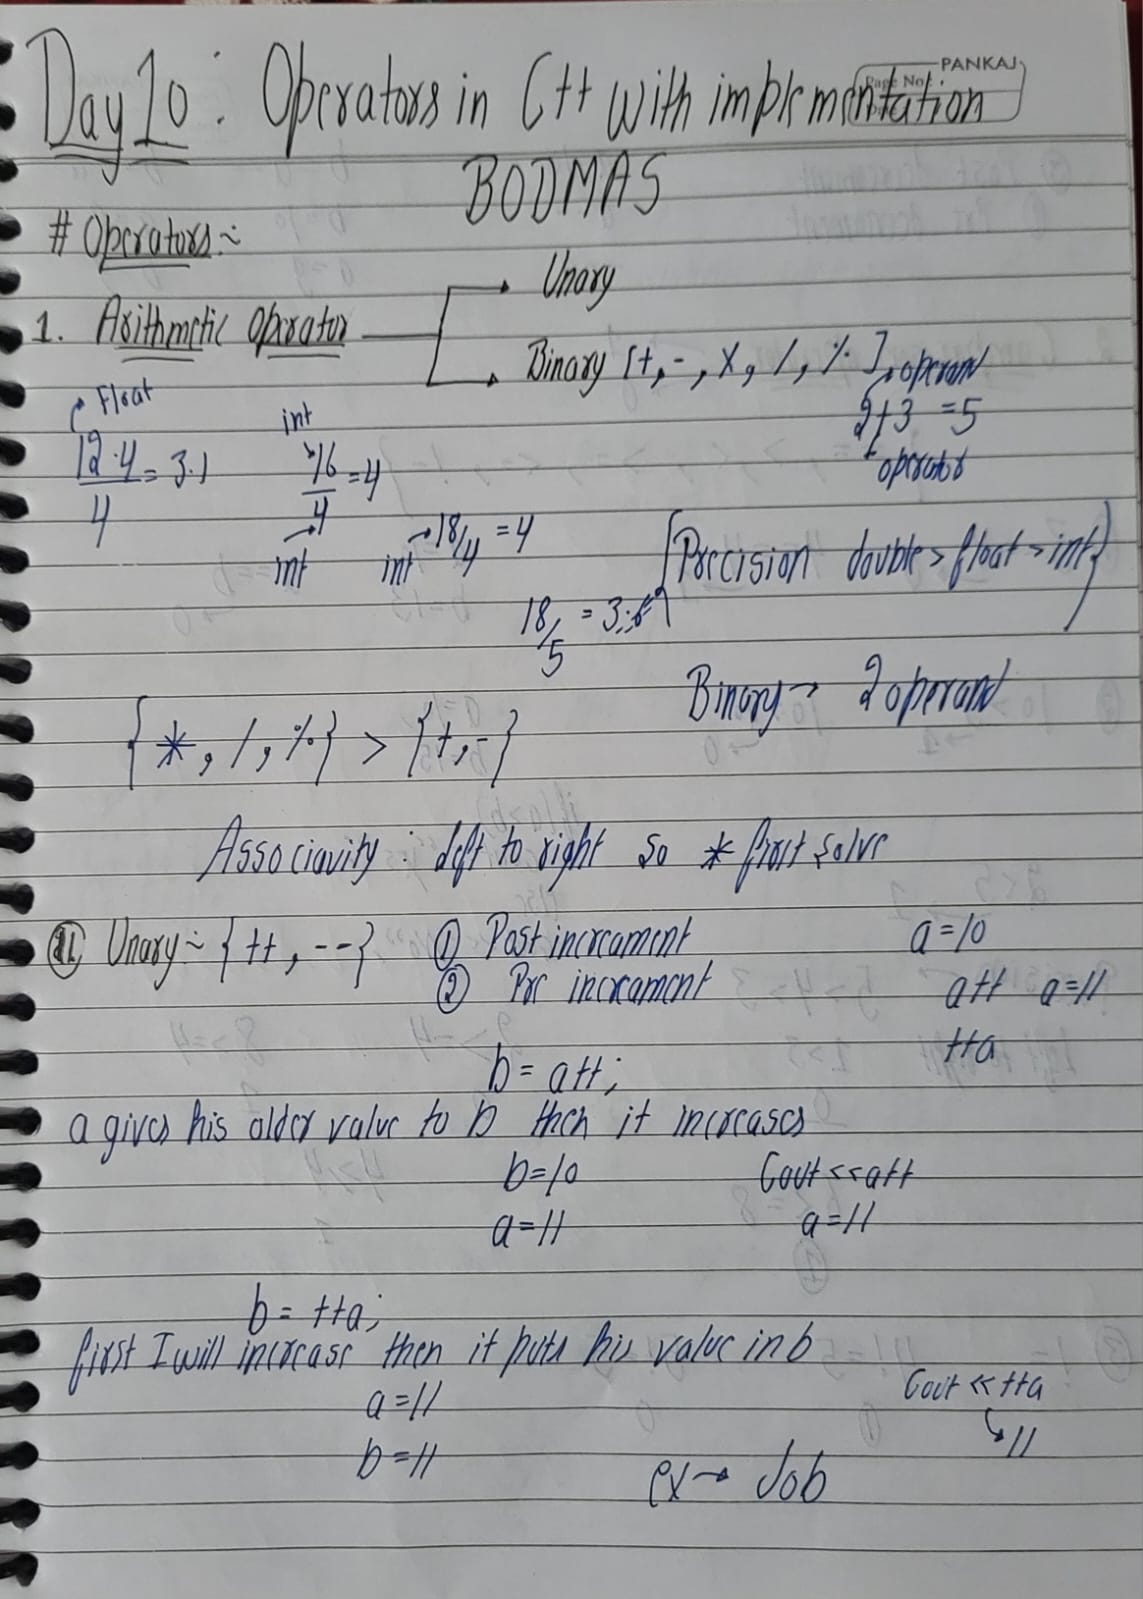 PANKAJ
Page No.
Day 10 : Operators in C++ with implementation
BODMAS
# Operators :~
Unary
1. Arithmetic Operator
Binary [+, -, x, /, % ]
operand
2+3 = 5
operator
Float
12.4/4 = 3.1
int
16/4 = 4
int
int 18/4 = 4
{Precision double > float > int}
18/5 = 3.6
Binary → 2 operand
{ *, /, % } > { +, - }
Associavity : left to right so * first solve
II Unary :~ { ++, -- } ① Post increament a = 10
② Pre increament a++ a = 11
++a
b = a++;
a gives his older value to b then it increases
b = 10 Cout << a++
a = 11 a = 11
b = ++a;
first I will increase then it puts his value in b
a = 11 Cout << ++a
11
b = 11
ex → Job